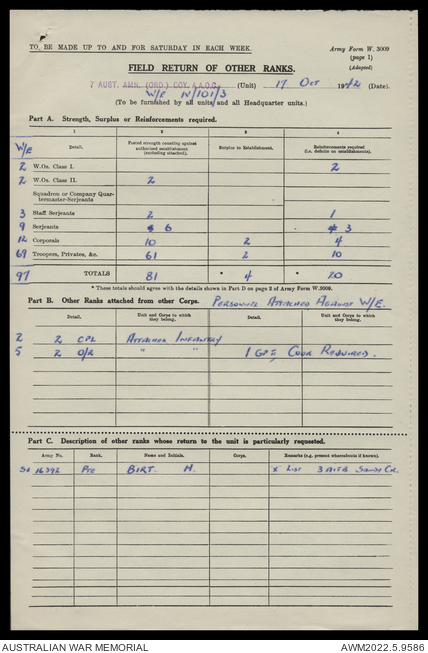 TO BE MADE UP TO AND FOR SATURDAY IN EACH WEEK.
Army Form W. 3009
(page 1)
(Adapted)
FIELD RETURN OF OTHER RANKS.
7 AUST. AMN. (ORD.) COY. A.A.O.C. (Unit) 17 Oct 1942 (Date).
W/E IV/101/3
(To be furnished by all units and all Headquarter units.)
Part A. Strength, Surplus or Reinforcements required.
1 2 3 4
W/E Detail. Posted strength counting against authorised establishment (excluding attached). Surplus to Establishment. Reinforcements required (i.e. deficits on establishments).
2 W.Os. Class I. 2
2 W.Os. Class II. 2
Squadron or Company Quar-
termaster-Serjeants
3 Staff Serjeants 2 1
9 Serjeants 6 3
12 Corporals 10 2 4
69 Troopers, Privates, &c. 61 2 10
97 TOTALS 81 * 4 * 20
* These totals should agree with the details shown in Part D on page 2 of Army Form W.3009.
Part B. Other Ranks attached from other Corps. PERSONNEL ATTACHED AGAINST W/E.
Detail. Unit and Corps to which they belong. Detail. Unit and Corps to which they belong.
2 2 CPL ATTACHED INFANTRY
5 2 O/R " " 1 GP II COOK REQUIRED.
Part C. Description of other ranks whose return to the unit is particularly requested.
Army No. Rank. Name and Initials. Corps. Remarks (e.g. present whereabouts if known).
16392 Pte BIRT. H. X LIST
AUSTRALIAN WAR MEMORIAL
AWM2022.5.9586